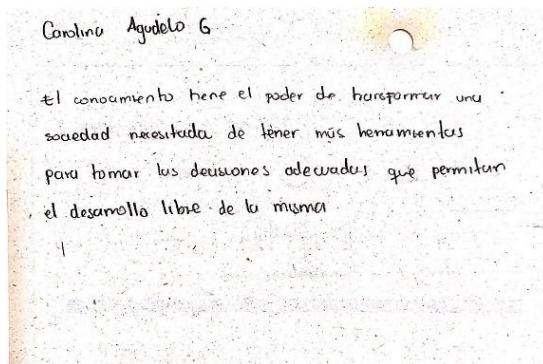 Carolina Agudelo G
El conocimiento tiene el poder de transformar una
sociedad necesitada de tener más herramientas
para tomar las decisiones adecuadas que permitan
el desarrollo libre de la misma